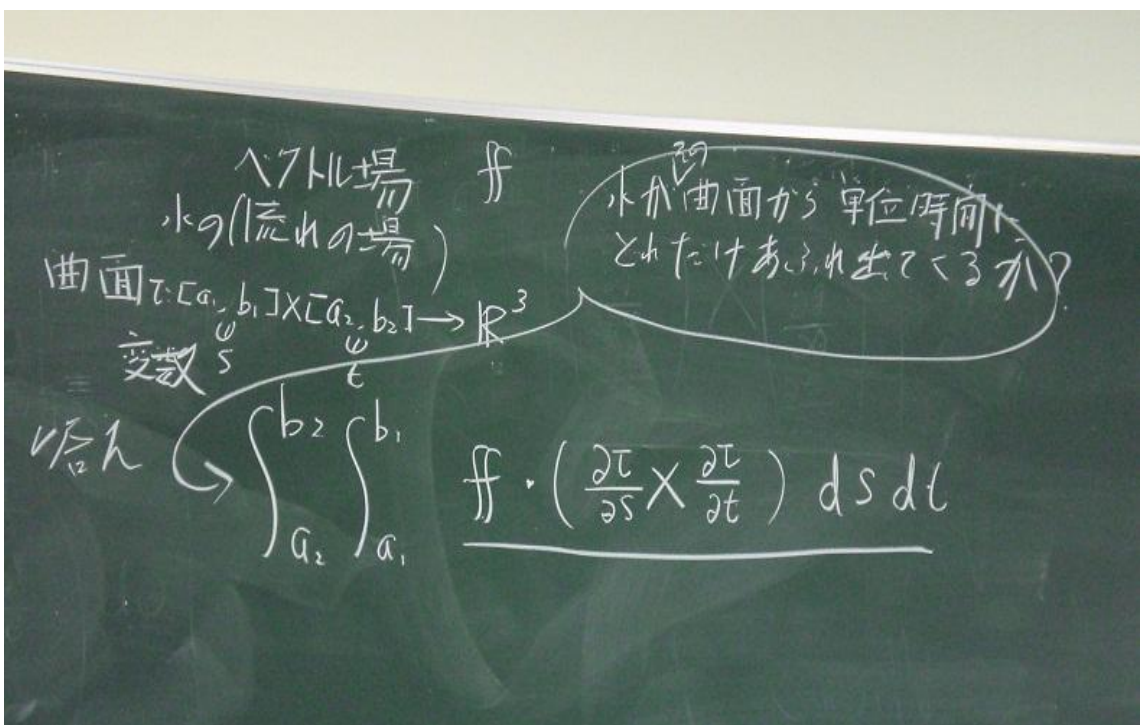 ベクトル場 f
水の(流れの場)
曲面 τ:[a₁,b₁]×[a₂,b₂]→ℝ³
変数 s t
水がその曲面から単位時間に
どれだけあふれ出てくるか?
答え ∫_{a₂}^{b₂} ∫_{a₁}^{b₁} f・(∂τ/∂s × ∂τ/∂t) ds dt